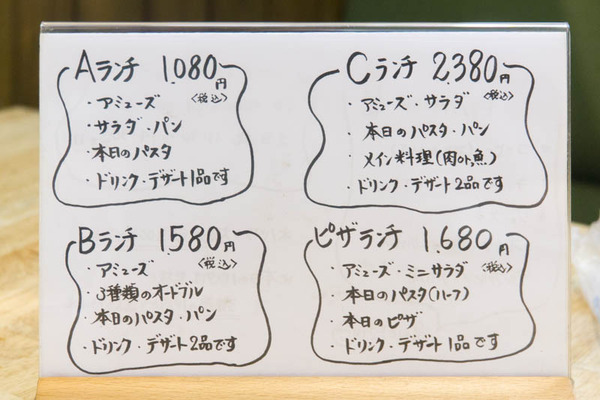 Aランチ 1.080円
〈税込〉
・アミューズ
・サラダ・パン
・本日のパスタ
・ドリンク・デザート1品です
Cランチ 2,380円
〈税込〉
・アミューズ・サラダ
・本日のパスタ・パン
・メイン料理(肉or魚)
・ドリンク・デザート2品です
Bランチ 1.580円
〈税込〉
・アミューズ
・3種類のオードブル
・本日のパスタ・パン
・ドリンク・デザート2品です
ピザランチ 1.680円
〈税込〉
・アミューズ・ミニサラダ
・本日のパスタ(ハーフ)
・本日のピザ
・ドリンク・デザート1品です